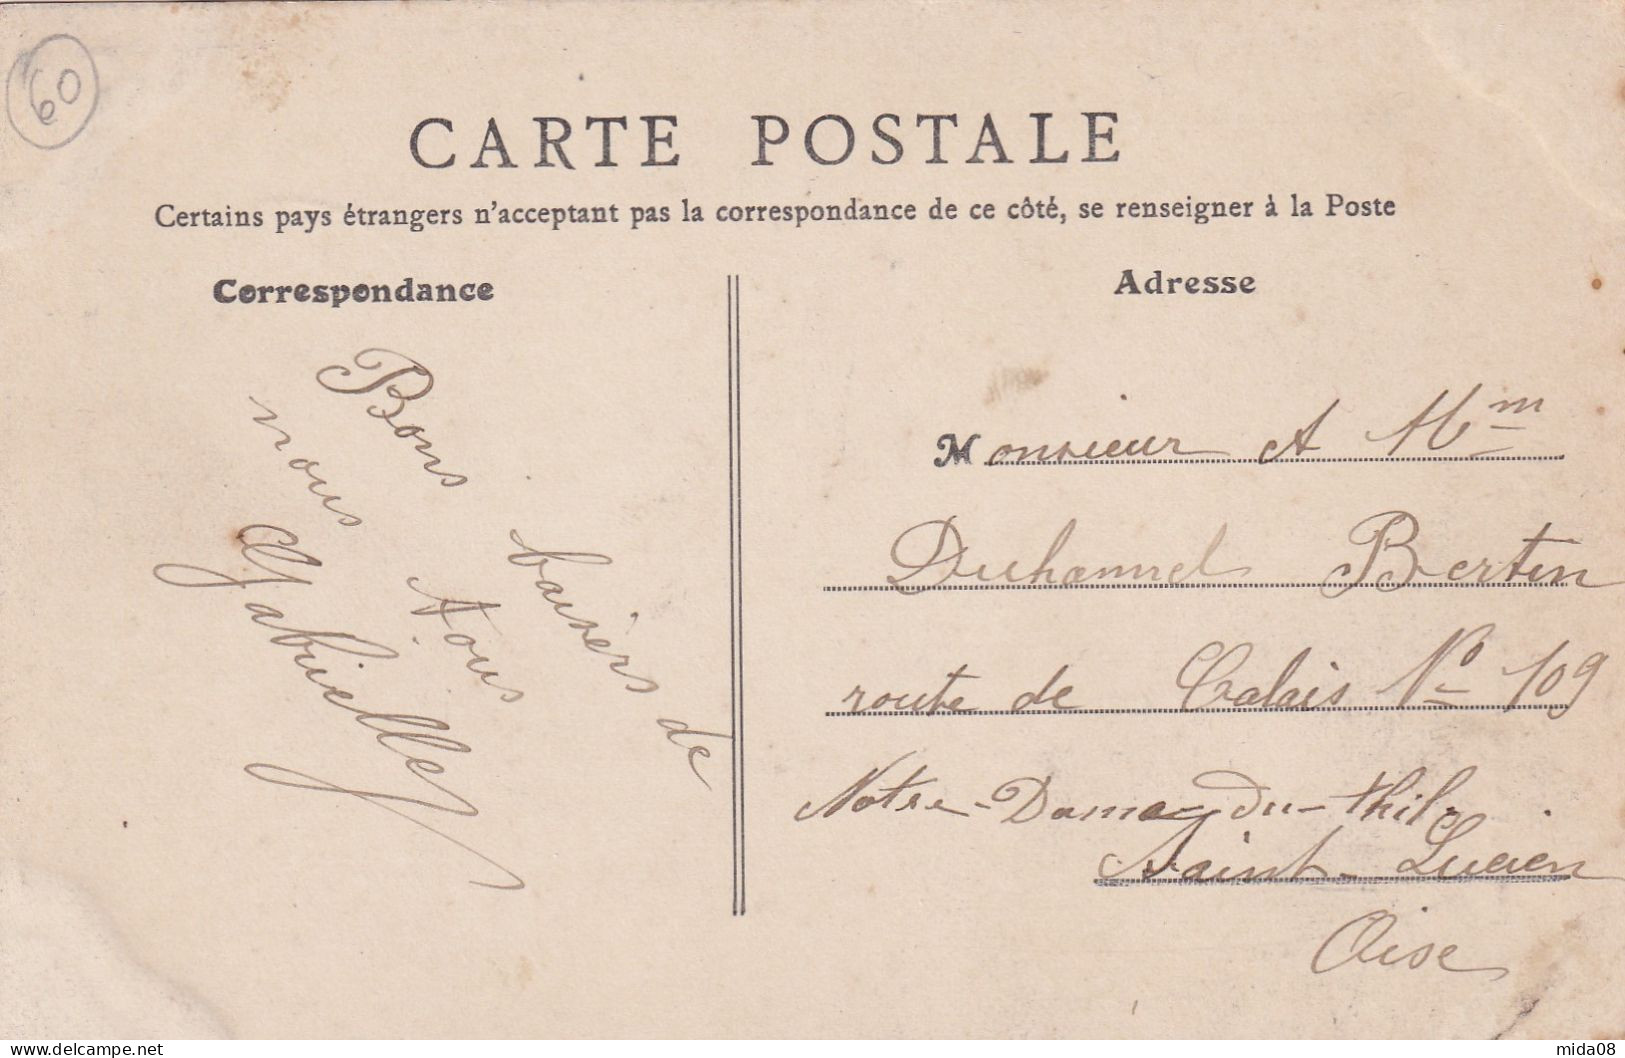 60
CARTE POSTALE
Certains pays étrangers n'acceptant pas la correspondance de ce côté, se renseigner à la Poste
Correspondance
Bons baisers de
nous Tous
Gabrielle
Adresse
Monsieur et Mm
Duhamel Bertin
route de Calais No 109
Notre-Dame-du-Thil-
Saint-Lucien
Oise
mida08